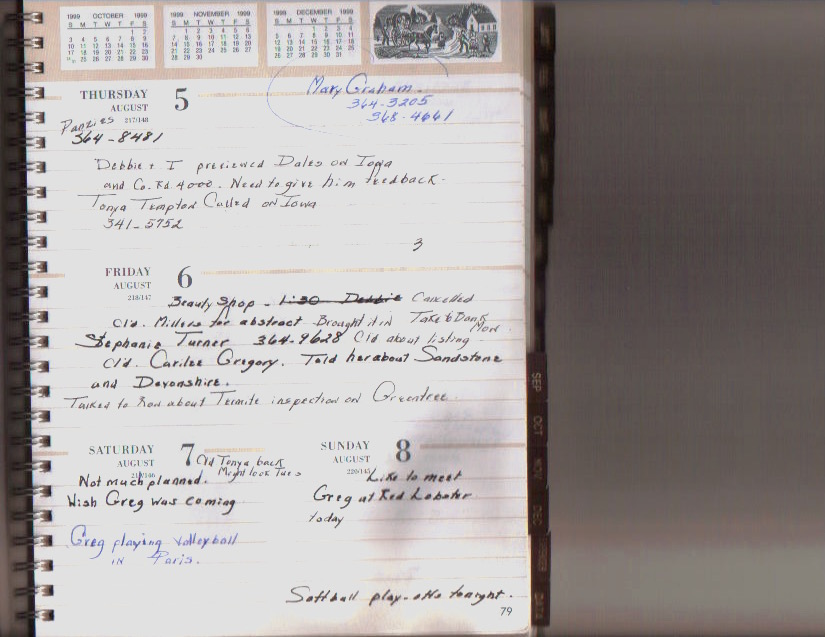 1999 OCTOBER 1999
S M T W T F S
1 2
3 4 5 6 7 8 9
10 11 12 13 14 15 16
17 18 19 20 21 22 23
25 26 27 28 29 30
1999 NOVEMBER 1999
S M T W T F S
1 2 3 4 5 6
7 8 9 10 11 12 13
14 15 16 17 18 19 20
21 22 23 24 25 26 27
28 29 30
1999 DECEMBER 1999
S M T W T F S
1 2 3 4
5 6 7 8 9 10 11
12 13 14 15 16 17 18
19 20 21 22 23 24 25
26 27 28 29 30 31
Mary Graham.
364-3205
368-4661
THURSDAY 5
AUGUST
217/148
Panzies
364-8481
Debbie + I previewed Dales on Iowa
and Co. Rd. 4000. Need to give him feedback.
Tonya Tempton Called on Iowa
341-5752
3
FRIDAY 6
AUGUST
218/147
Beauty Shop - 1:30 Debbie Cancelled
Cld. Millers for abstract Brought it in Take to Bank
Mon.
Stephanie Turner 364-9628 Cld about listing
Cld. Carilee Gregory. Told her about Sandstone
and Devonshire.
Talked to Ron about Termite inspection on Greentree.
SATURDAY 7
AUGUST
219/146
Cld Tonya back
Might look Tues
Not much planned.
Wish Greg was coming
Greg playing volleyball
in Paris.
SUNDAY 8
AUGUST
220/145
Like to meet
Greg at Red Lobster
today
Softball play-offs tonight.
79
SEP
OCT
NOV
DEC
DATA